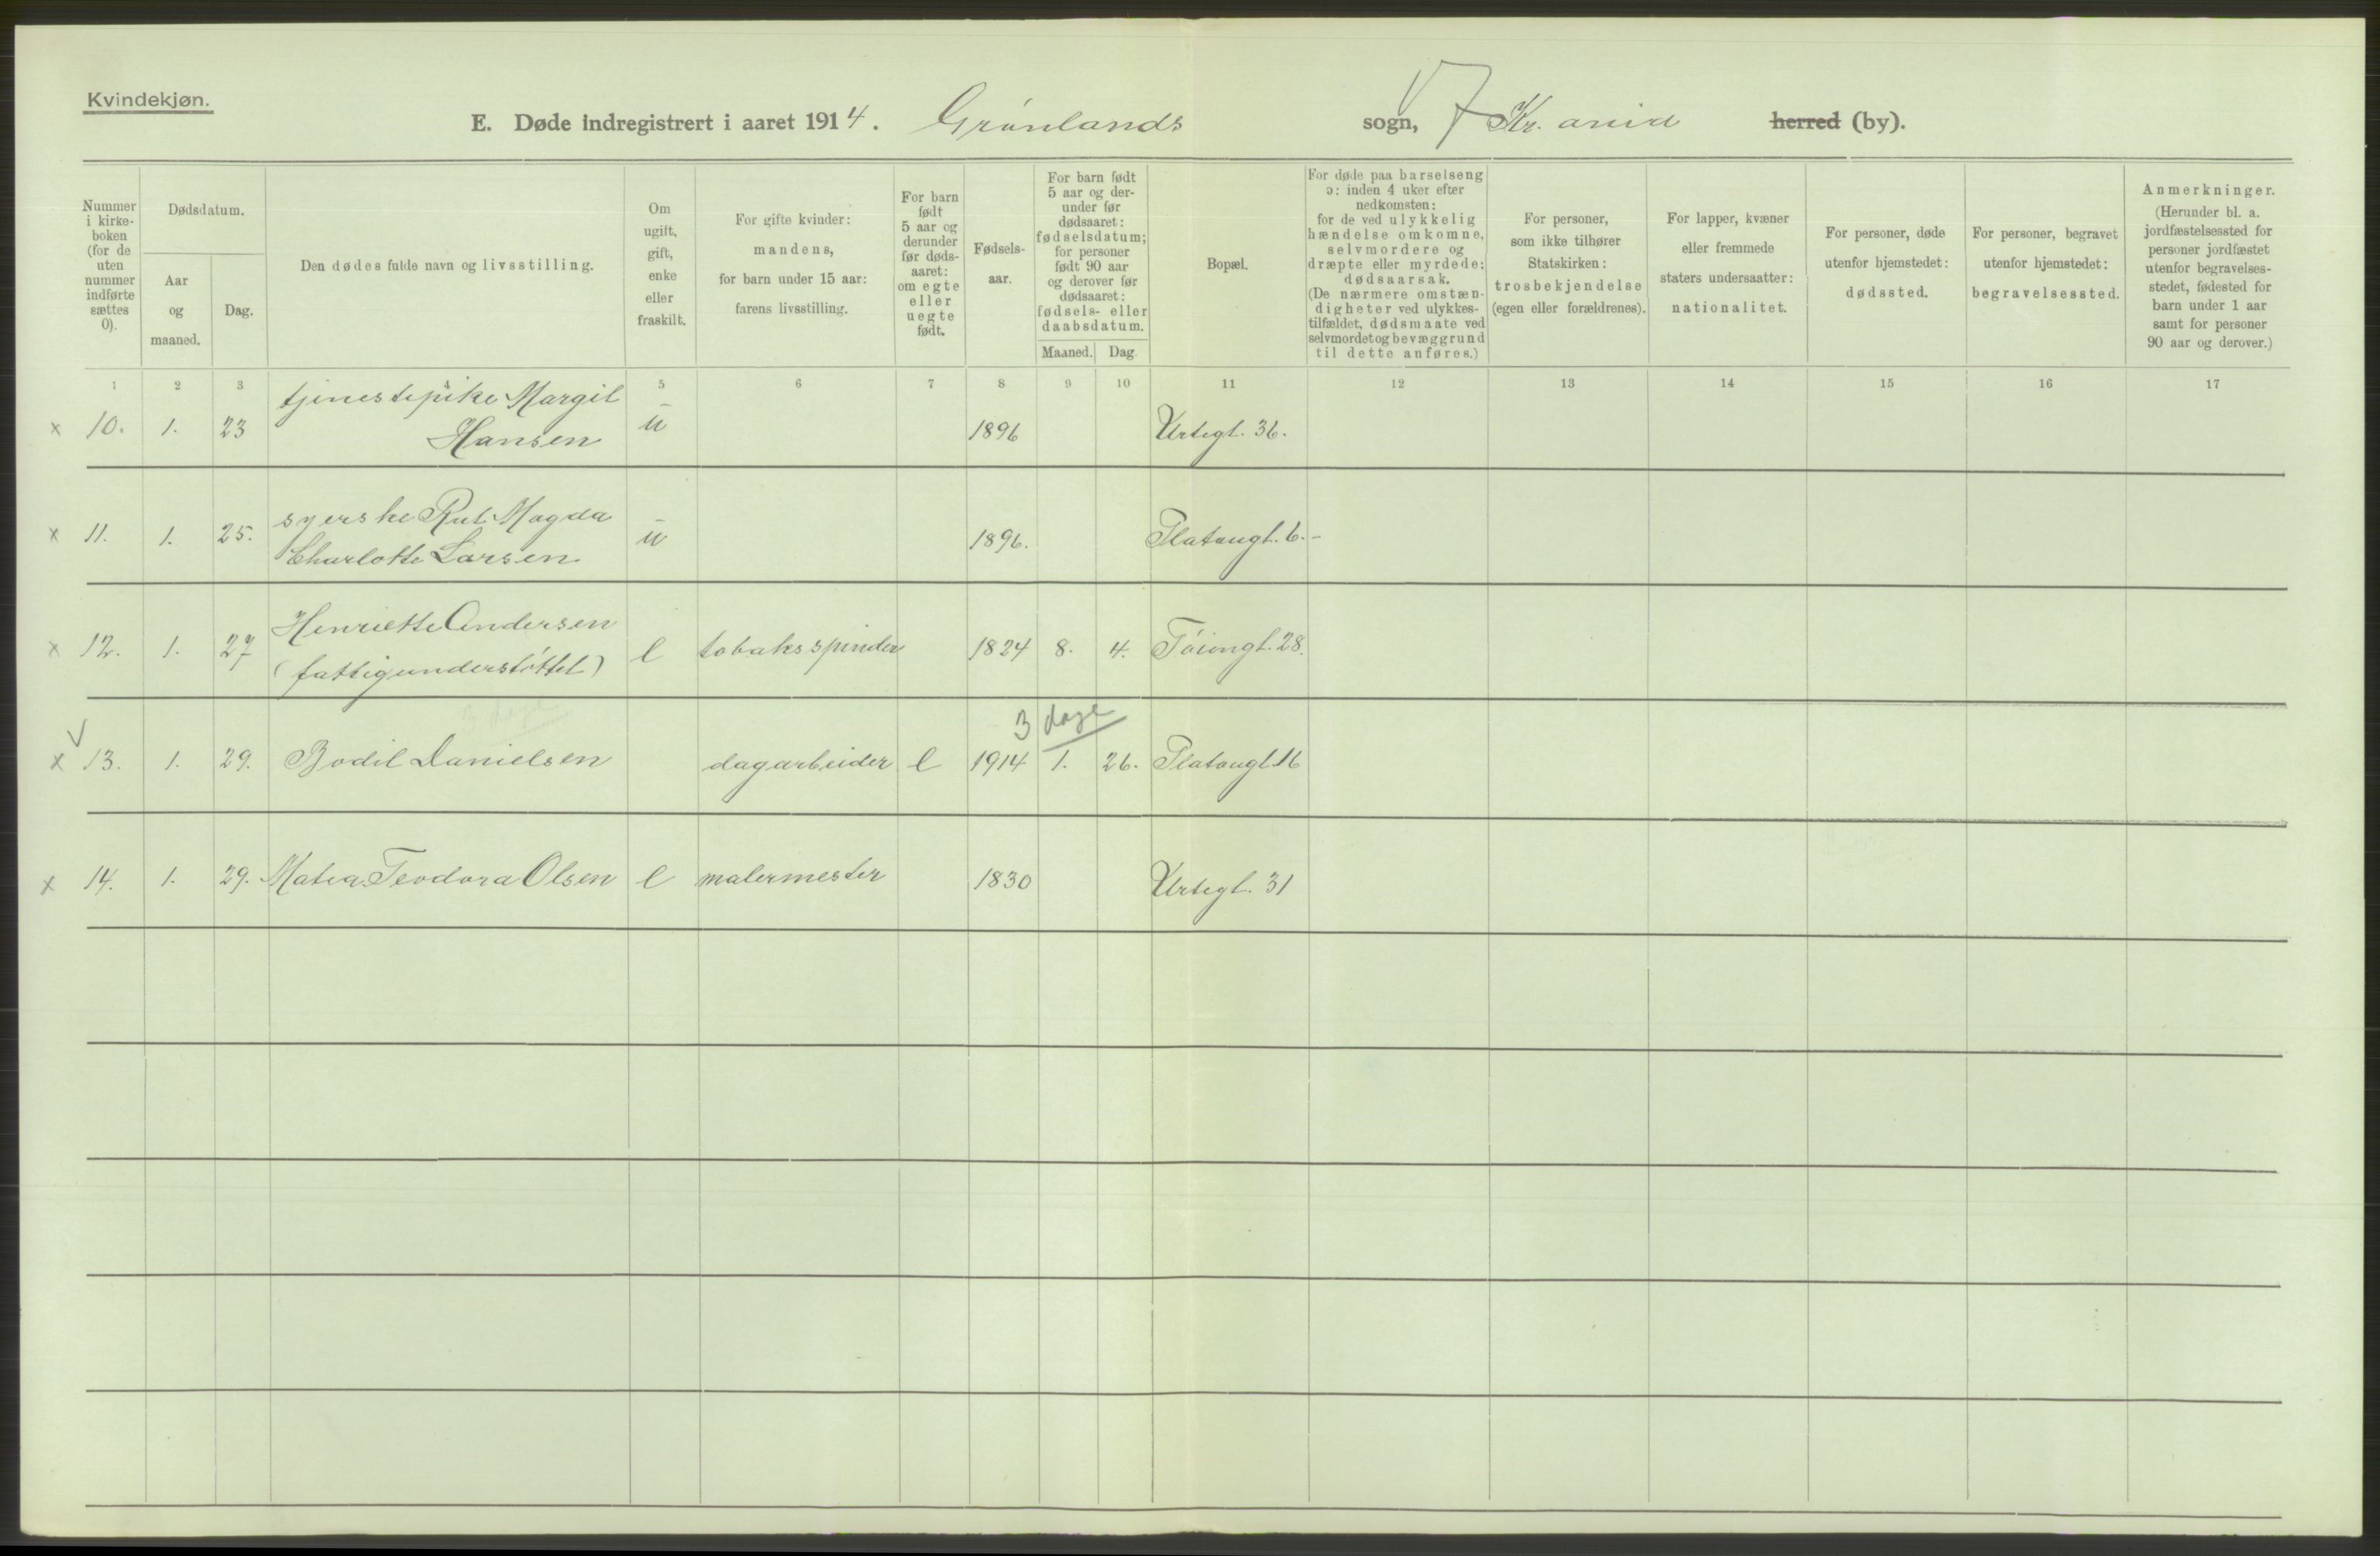 Kvindekjøn.
E. Døde indregistrert i aaret 1914. Grønlands sogn, 7 Kr.ania herred (by).
Nummer i kirke-boken (for de uten nummer indførte sættes 0).
Dødsdatum.
Aar og maaned.
Dag.
Den dødes fulde navn og livsstilling.
Om ugift, gift, enke eller fraskilt.
For gifte kvinder: mandens, for barn under 15 aar: farens livsstilling.
For barn født 5 aar og derunder før døds-aaret: om egte eller uegte født.
Fødsels-aar.
For barn født 5 aar og der-under før dødsaaret: fødselsdatum; for personer født 90 aar og derover før dødsaaret: fødsels- eller daabsdatum.
Maaned. Dag
Bopæl.
For døde paa barselseng ɔ: inden 4 uker efter nedkomsten: for de ved ulykkelig hændelse omkomne, selvmordere og dræpte eller myrdede: dødsaarsak. (De nærmere omstæn-digheter ved ulykkes-tilfældet, dødsmaate ved selvmordet og bevæggrund til dette anføres.)
For personer, som ikke tilhører Statskirken: trosbekjendelse (egen eller forældrenes).
For lapper, kvæner eller fremmede staters undersaatter: nationalitet.
For personer, døde utenfor hjemstedet: dødssted.
For personer, begravet utenfor hjemstedet: begravelsessted.
Anmerkninger. (Herunder bl. a. jordfæstelsessted for personer jordfæstet utenfor begravelses-stedet, fødested for barn under 1 aar samt for personer 90 aar og derover.)
1 2 3 4 5 6 7 8 9 10 11 12 13 14 15 16 17
x 10. 1. 23 tjenestepike Margit Hansen u 1896 Urtegt. 36.
x 11. 1. 25. syerske Rut Magda Charlotte Larsen u 1896. Platougt. 6.-
x 12. 1. 27 Henriette Andersen (fattigunderstøttet) e tobaksspinder 1824 8. 4. Tøiengt. 28.
3 dage
x 13. 1. 29. Bodil Danielsen dagarbeider e 1914 1. 26. Platougt. 16
x 14. 1. 29. Matea Teodora Olsen e malermester 1830 Urtegt. 31